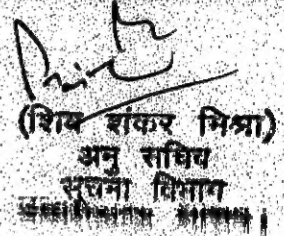 (शिव शंकर मिश्रा)
अनु सचिव
सूचना विभाग
शासन।